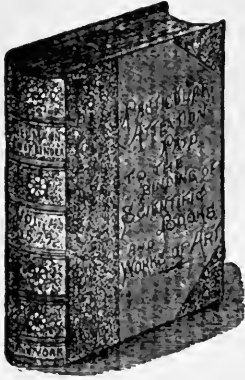 PARTICULAR
ATTENTION
PAID
TO THE
BINDING OF
SCIENTIFIC
BOOKS
AND
WORKS OF ART
NEW YORK